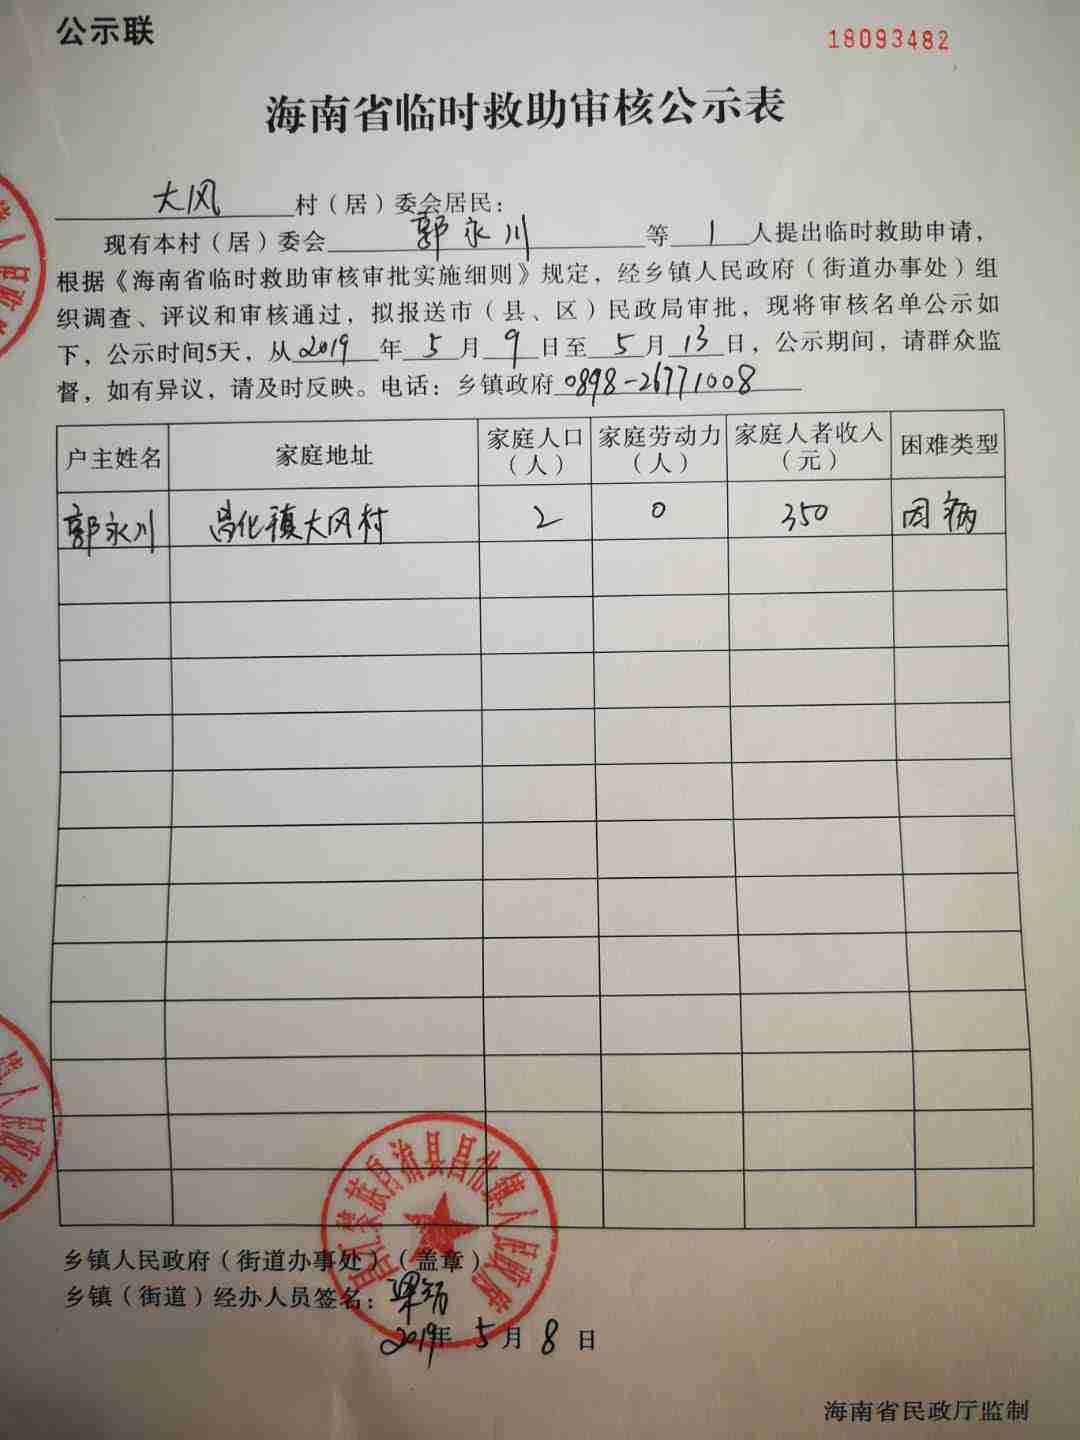 公示联
18093482
海南省临时救助审核公示表
大风村（居）委会居民：
现有本村（居）委会郭永川等1人提出临时救助申请，
根据《海南省临时救助审核审批实施细则》规定，经乡镇人民政府（街道办事处）组
织调查、评议和审核通过，拟报送市（县、区）民政局审批，现将审核名单公示如
下，公示时间5天，从2019年5月9日至5月13日，公示期间，请群众监
督，如有异议，请及时反映。电话：乡镇政府0898-26771008
户主姓名 家庭地址 家庭人口（人） 家庭劳动力（人） 家庭人者收入（元） 困难类型
郭永川 昌化镇大风村 2 0 350 因病
乡镇人民政府（街道办事处）（盖章）
乡镇（街道）经办人员签名：
2019年5月8日
昌江黎族自治县昌化镇人民政府
镇人民政府
镇人民政府
海南省民政厅监制